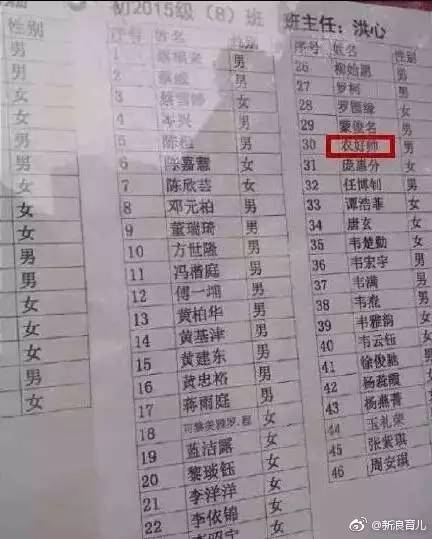 性别
男
男
女
男
女
女
女
女
女
男
男
女
女
女
女
男
女
初2015级（8）班 班主任：洪心
序号 姓名 性别
1 男
2 蔡威 男
3 蔡雪婷 女
4 岑兴 男
5 陈 男
6 陈嘉慧 女
7 陈欣芸 女
8 邓元柏 男
9 董瑞琦 男
10 方世隆 男
11 冯楷庭 男
12 傅一 女
13 黄柏华 男
14 黄基津 男
15 黄建东 男
16 黄忠裕 男
17 蒋雨庭
18 女
19 蓝洁露 女
20 黎琰钰 女
21 李洋洋 女
22 李依锦 女
序号 姓名 性别
26 柳始恩 男
27 罗柯 男
28 罗圆缘 女
29 蒙俊名 男
30 农好帅 男
31 庞惠分 女
32 任博钊 男
33 谭浩菲 女
34 唐玄 男
35 韦楚勤 女
36 韦宏宇 男
37 韦满 男
38 韦焘 男
39 韦雅韵 女
40 韦云钰
41 徐俊驰
42 杨蕊霞
43 杨燕菁
44 玉礼荣
45 张紫琪
46 周安琪
@新浪育儿